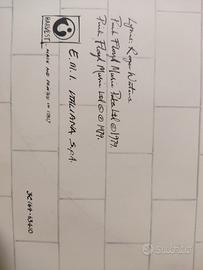 Lyrics: Roger Waters
Pink Floyd Music Pub. Ltd © 1979.
Pink Floyd Music Ltd ℗ © 1979.
HARVEST
MADE AND PRINTED IN ITALY
E.M.I. ITALIANA S.p.A.
3C 164-63410
subito